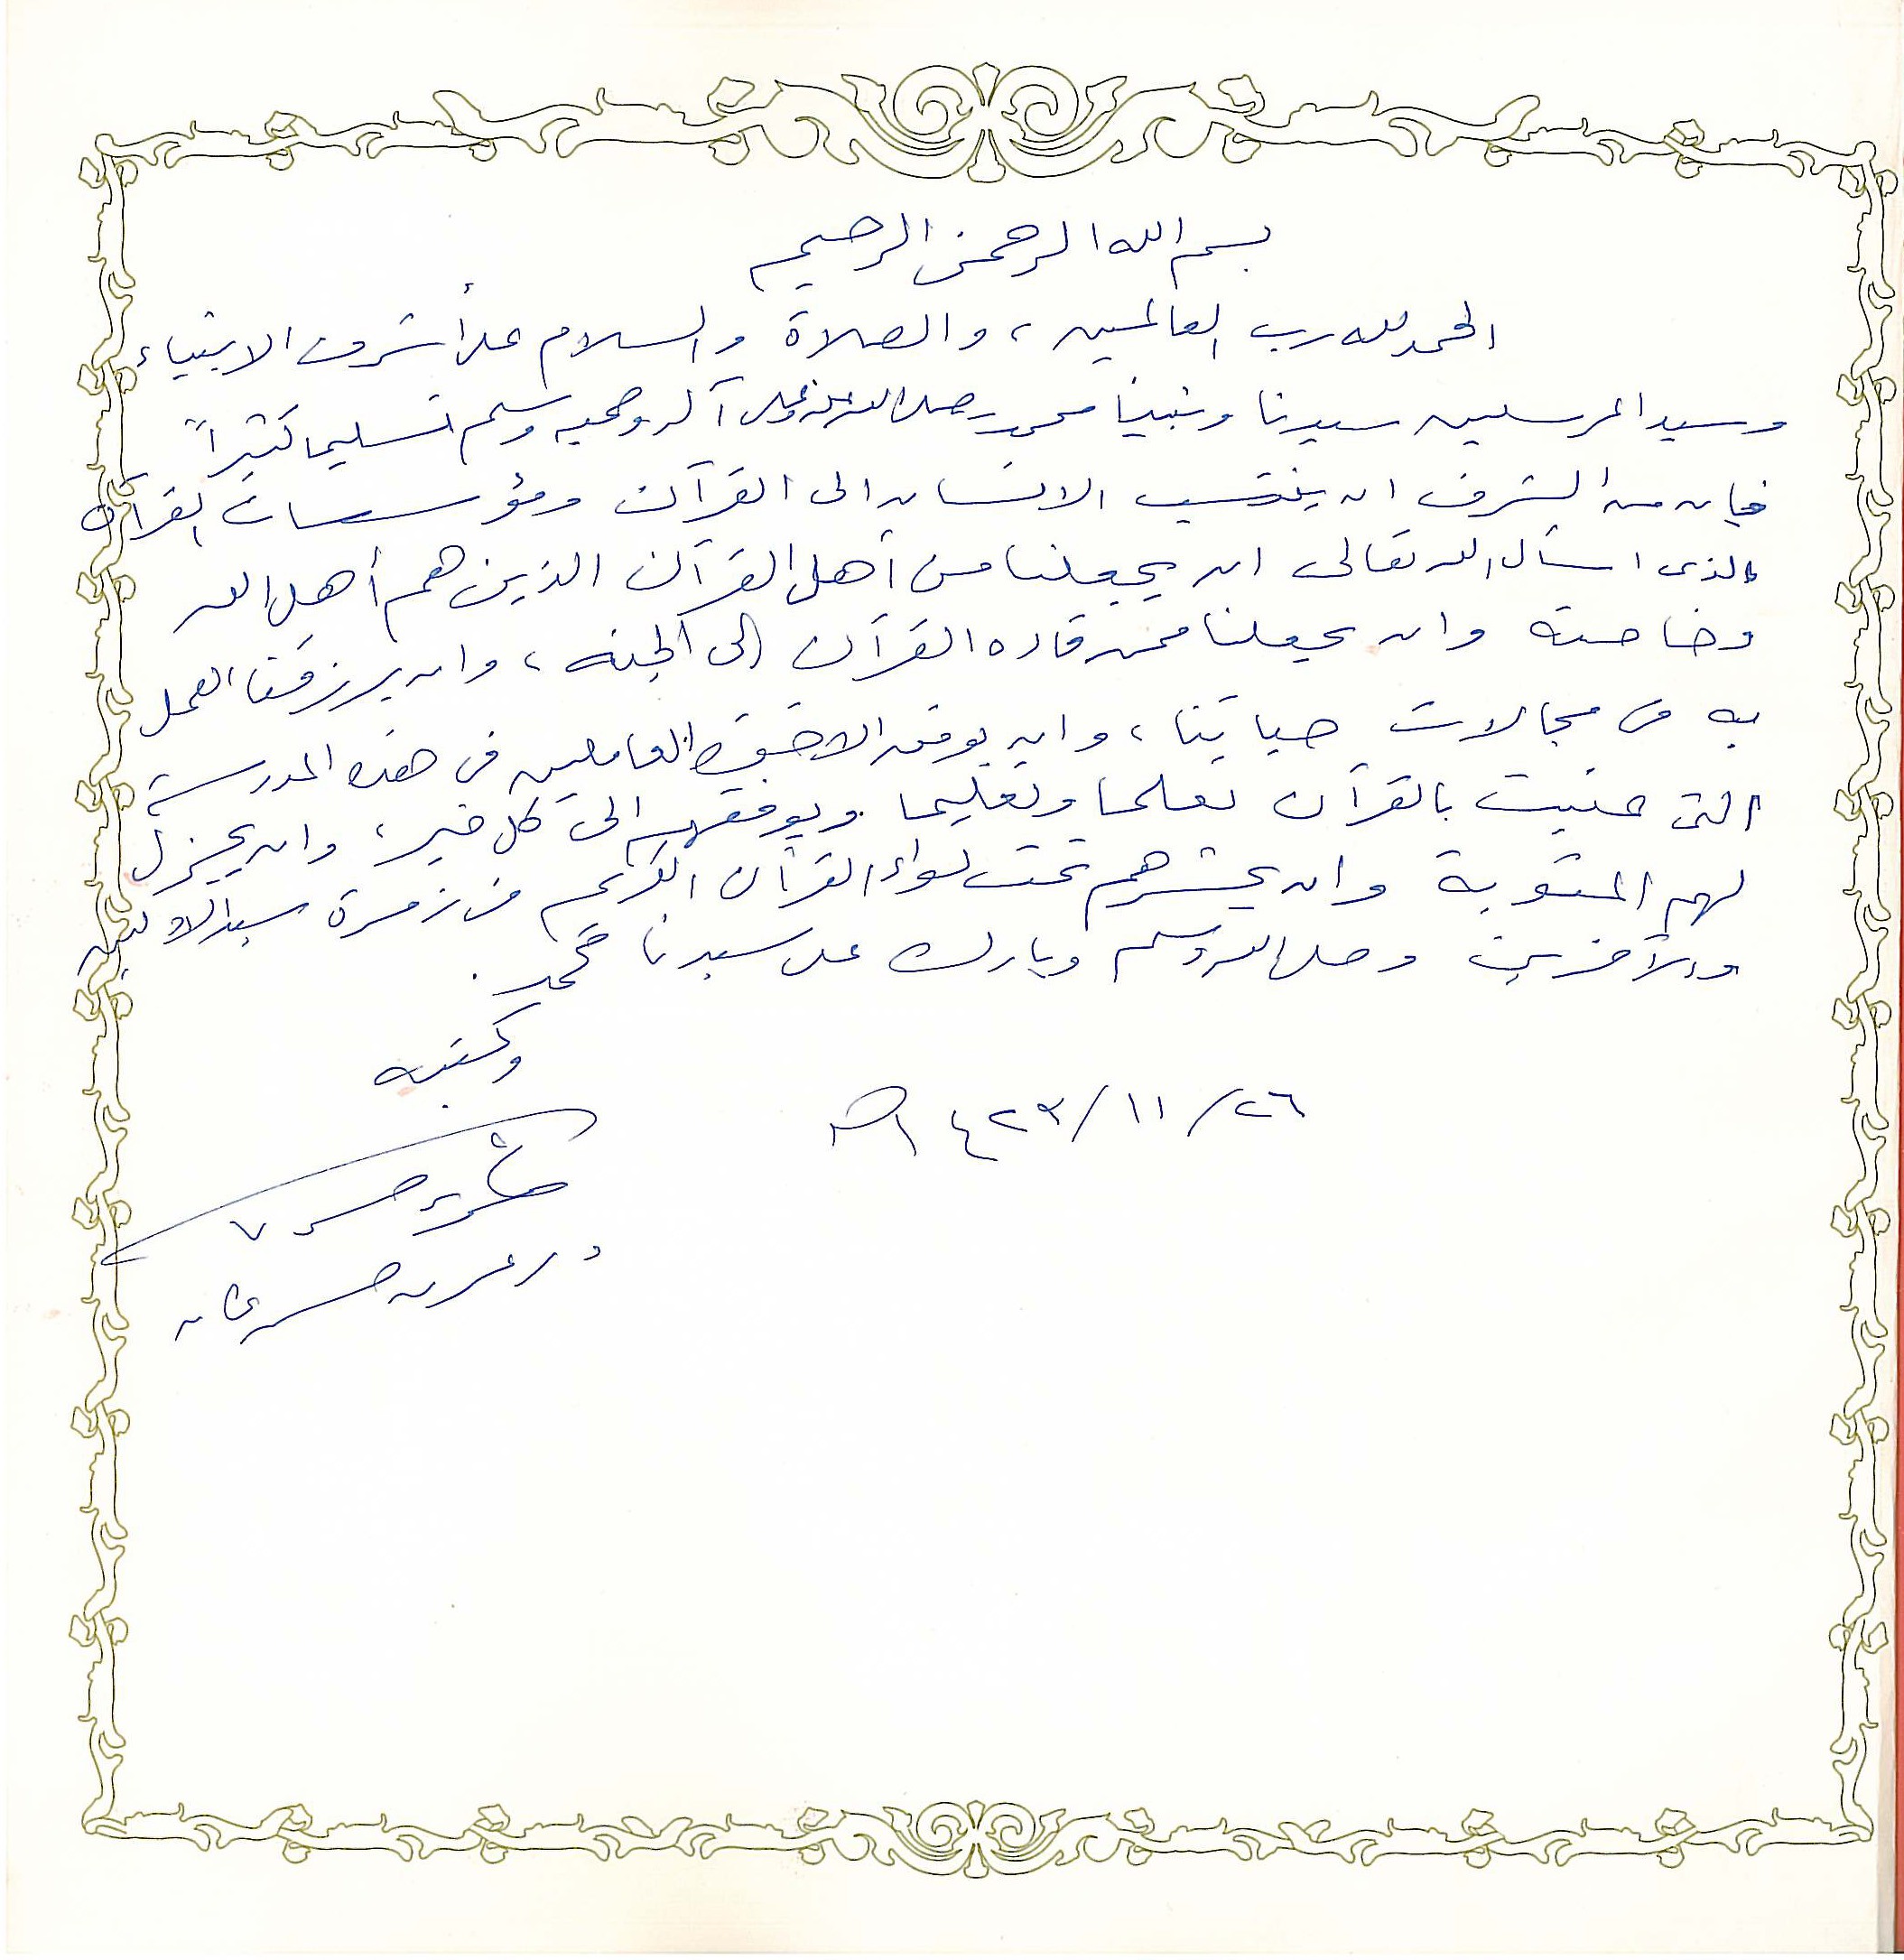 بسم الله الرحمن الرحيم
الحمد لله رب العالمين ، والصلاة والسلام على أشرف الانبياء
وسيد المرسلين سيدنا ونبينا محمد صلى الله عليه وعلى آله وصحبه وسلم تسليما كثيراً
فإن من الشرف ان ينتسب الانسان الى القرآن ومؤسسات القرآن
والذى اسأل الله تعالى ان يجعلنا من أهل القرآن الذين هم أهل الله
وخاصته وان يجعلنا ممن قاده القرآن إلى الجنه ، وان يرزقنا العمل
به فى مجالات حياتنا ، وان يوفق الاخوة العاملين فى هذه المدرسة
التى عنيت بالقرآن تعلما وتعليما ويوفقهم الى كل خير ، وان يجزل
لهم المثوبة وان يحشرهم تحت لواء القرآن الكريم فى زمرة سيد الاولين
والآخرين وصلى الله وسلم وبارك على سيدنا محمد .
وكتبه
٢٦/ ١١ / ١٤٢٣هـ
د.